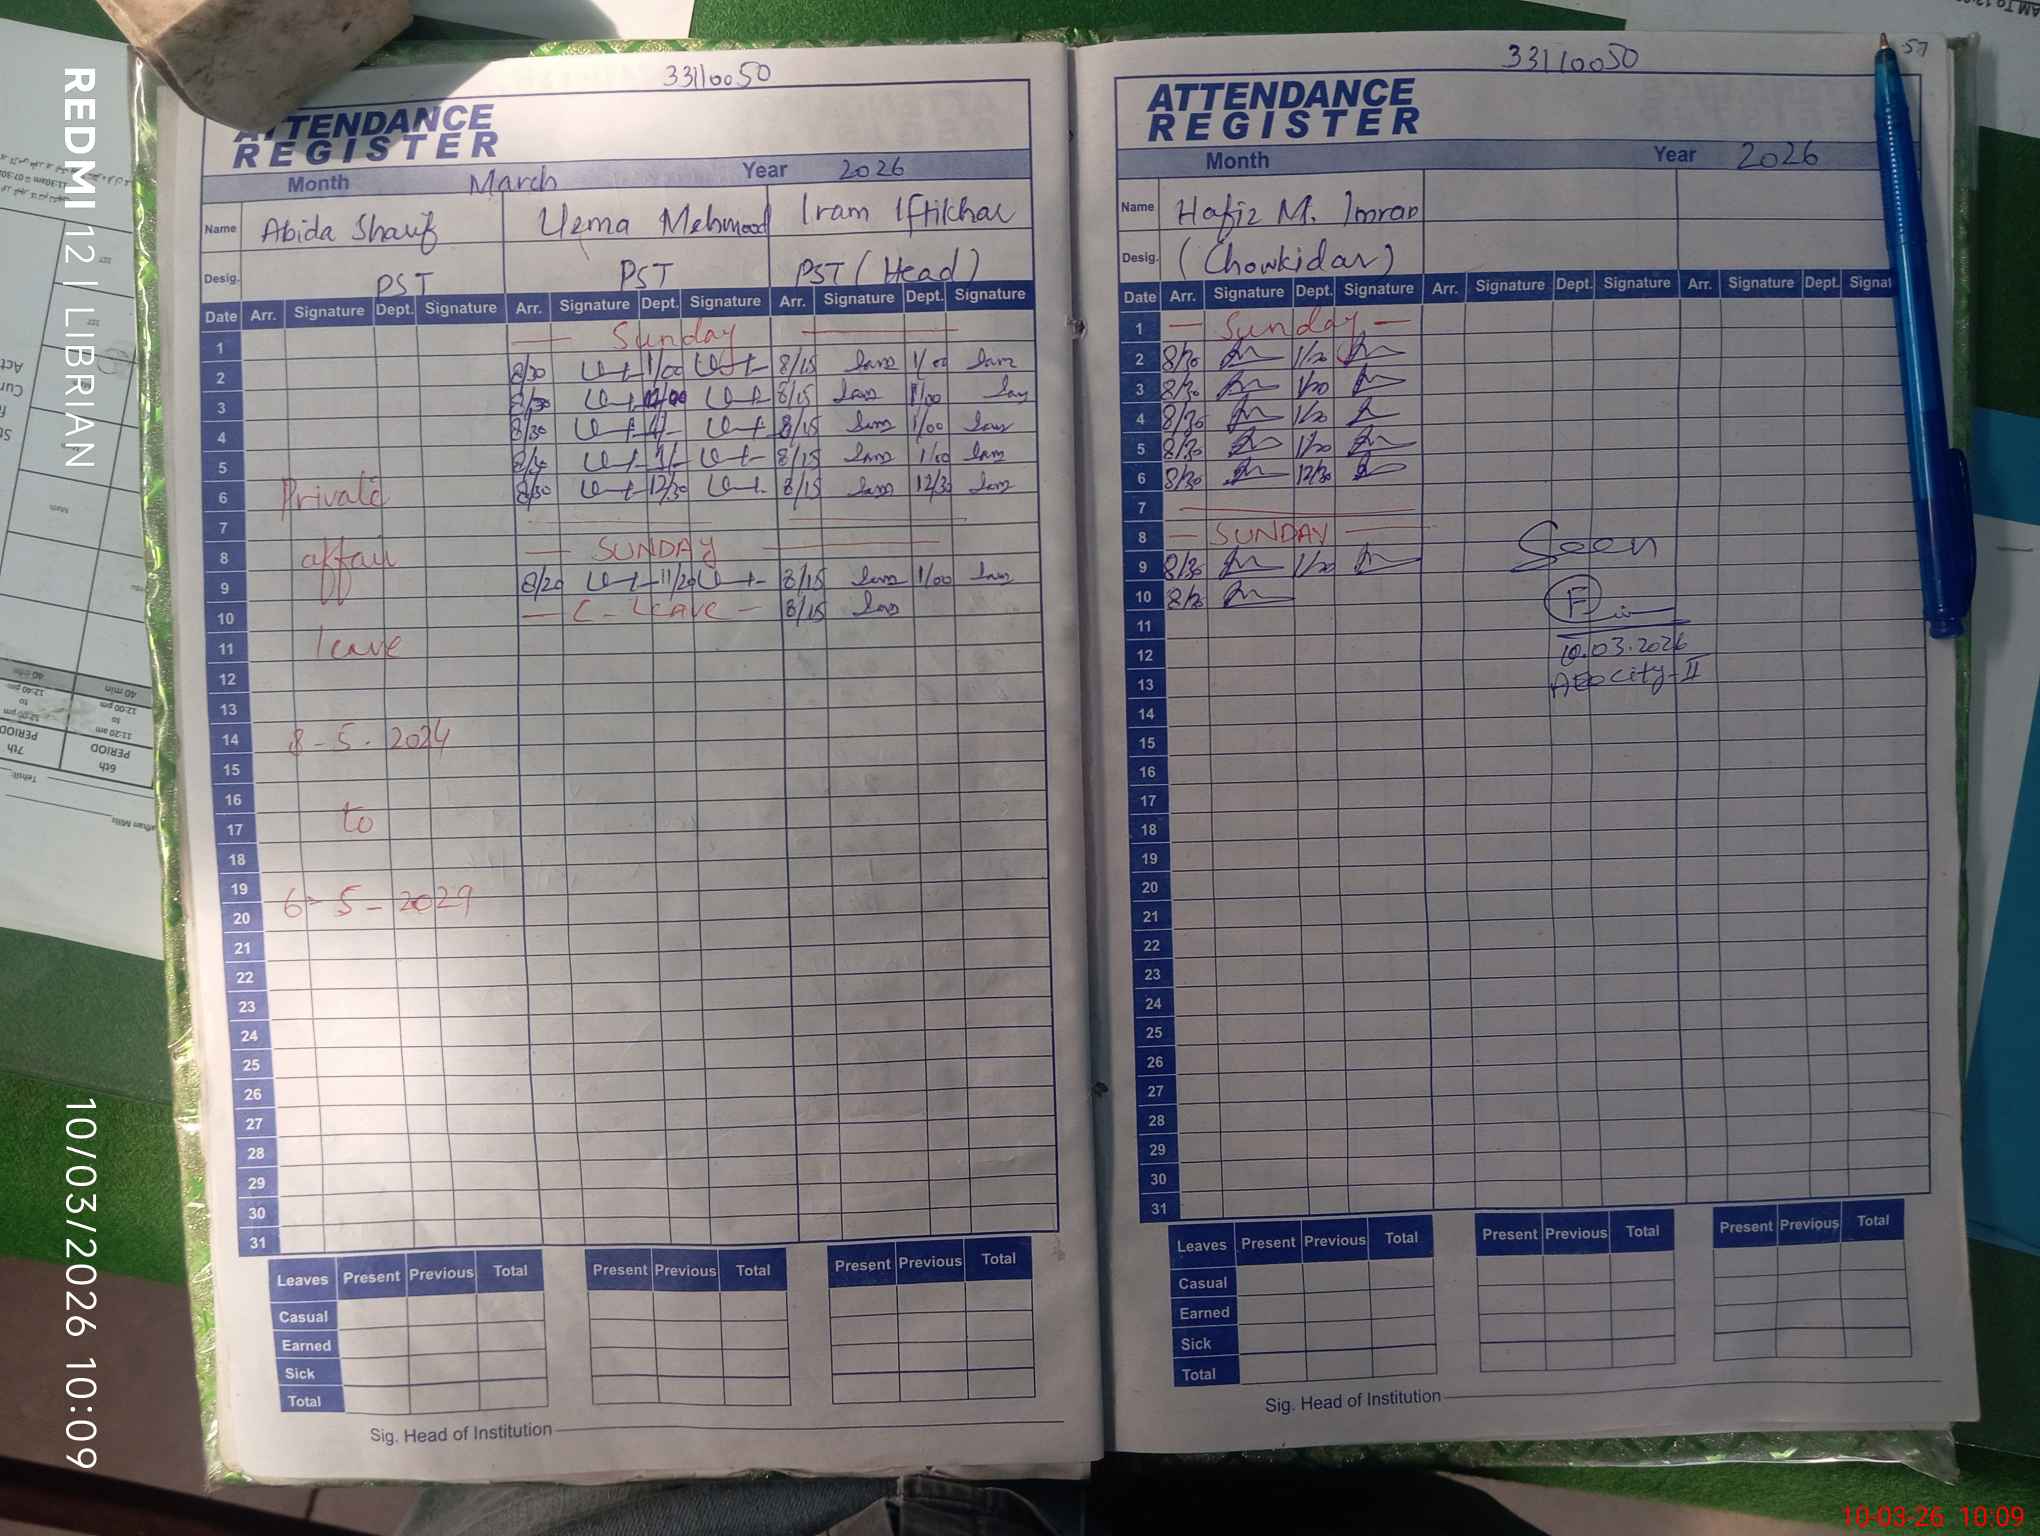 33110050
ATTENDANCE
REGISTER
Month March Year 2026
Name Abida Sharif Uzma Mehmood Iram Iftikhar
Desig. PST PST PST (Head)
Date Arr. Signature Dept. Signature Arr. Signature Dept. Signature Arr. Signature Dept. Signature
1 Sunday
2 8/30 1/00 8/15 1/00
3 8/30 8/15 1/00
4 8/30 8/15 1/00
5 8/30 8/15 1/00
6 Private 8/30 12/30 8/15 12/30
7
8 affair SUNDAY
9 8/20 11/20 8/15 1/00
10 C-Leave 8/15
11 leave
12
13
14 8-5-2024
15
16
17 to
18
19
20 6-5-2029
21
22
23
24
25
26
27
28
29
30
31
Leaves Present Previous Total Present Previous Total Present Previous Total
Casual
Earned
Sick
Total
Sig. Head of Institution
33110050
57
ATTENDANCE
REGISTER
Month Year 2026
Name Hafiz M. Imran
Desig. (Chowkidar)
Date Arr. Signature Dept. Signature Arr. Signature Dept. Signature Arr. Signature Dept.
1 Sunday
2 8/30 1/30
3 8/30 1/30
4 8/30 1/30
5 8/30 1/30
6 8/30 12/30
7
8 SUNDAY Seen
9 8/30 1/30
10 8/30
11
12 10.03.2026
13 AEO City-II
14
15
16
17
18
19
20
21
22
23
24
25
26
27
28
29
30
31
Leaves Present Previous Total Present Previous Total Present Previous Total
Casual
Earned
Sick
Total
Sig. Head of Institution
REDMI 12 | LIBRIAN
10/03/2026 10:09
10-03-26 10:09
6th
PERIOD
11:20 am
to
12:00 pm
40 min
7th
PERIOD
to
12:40 pm